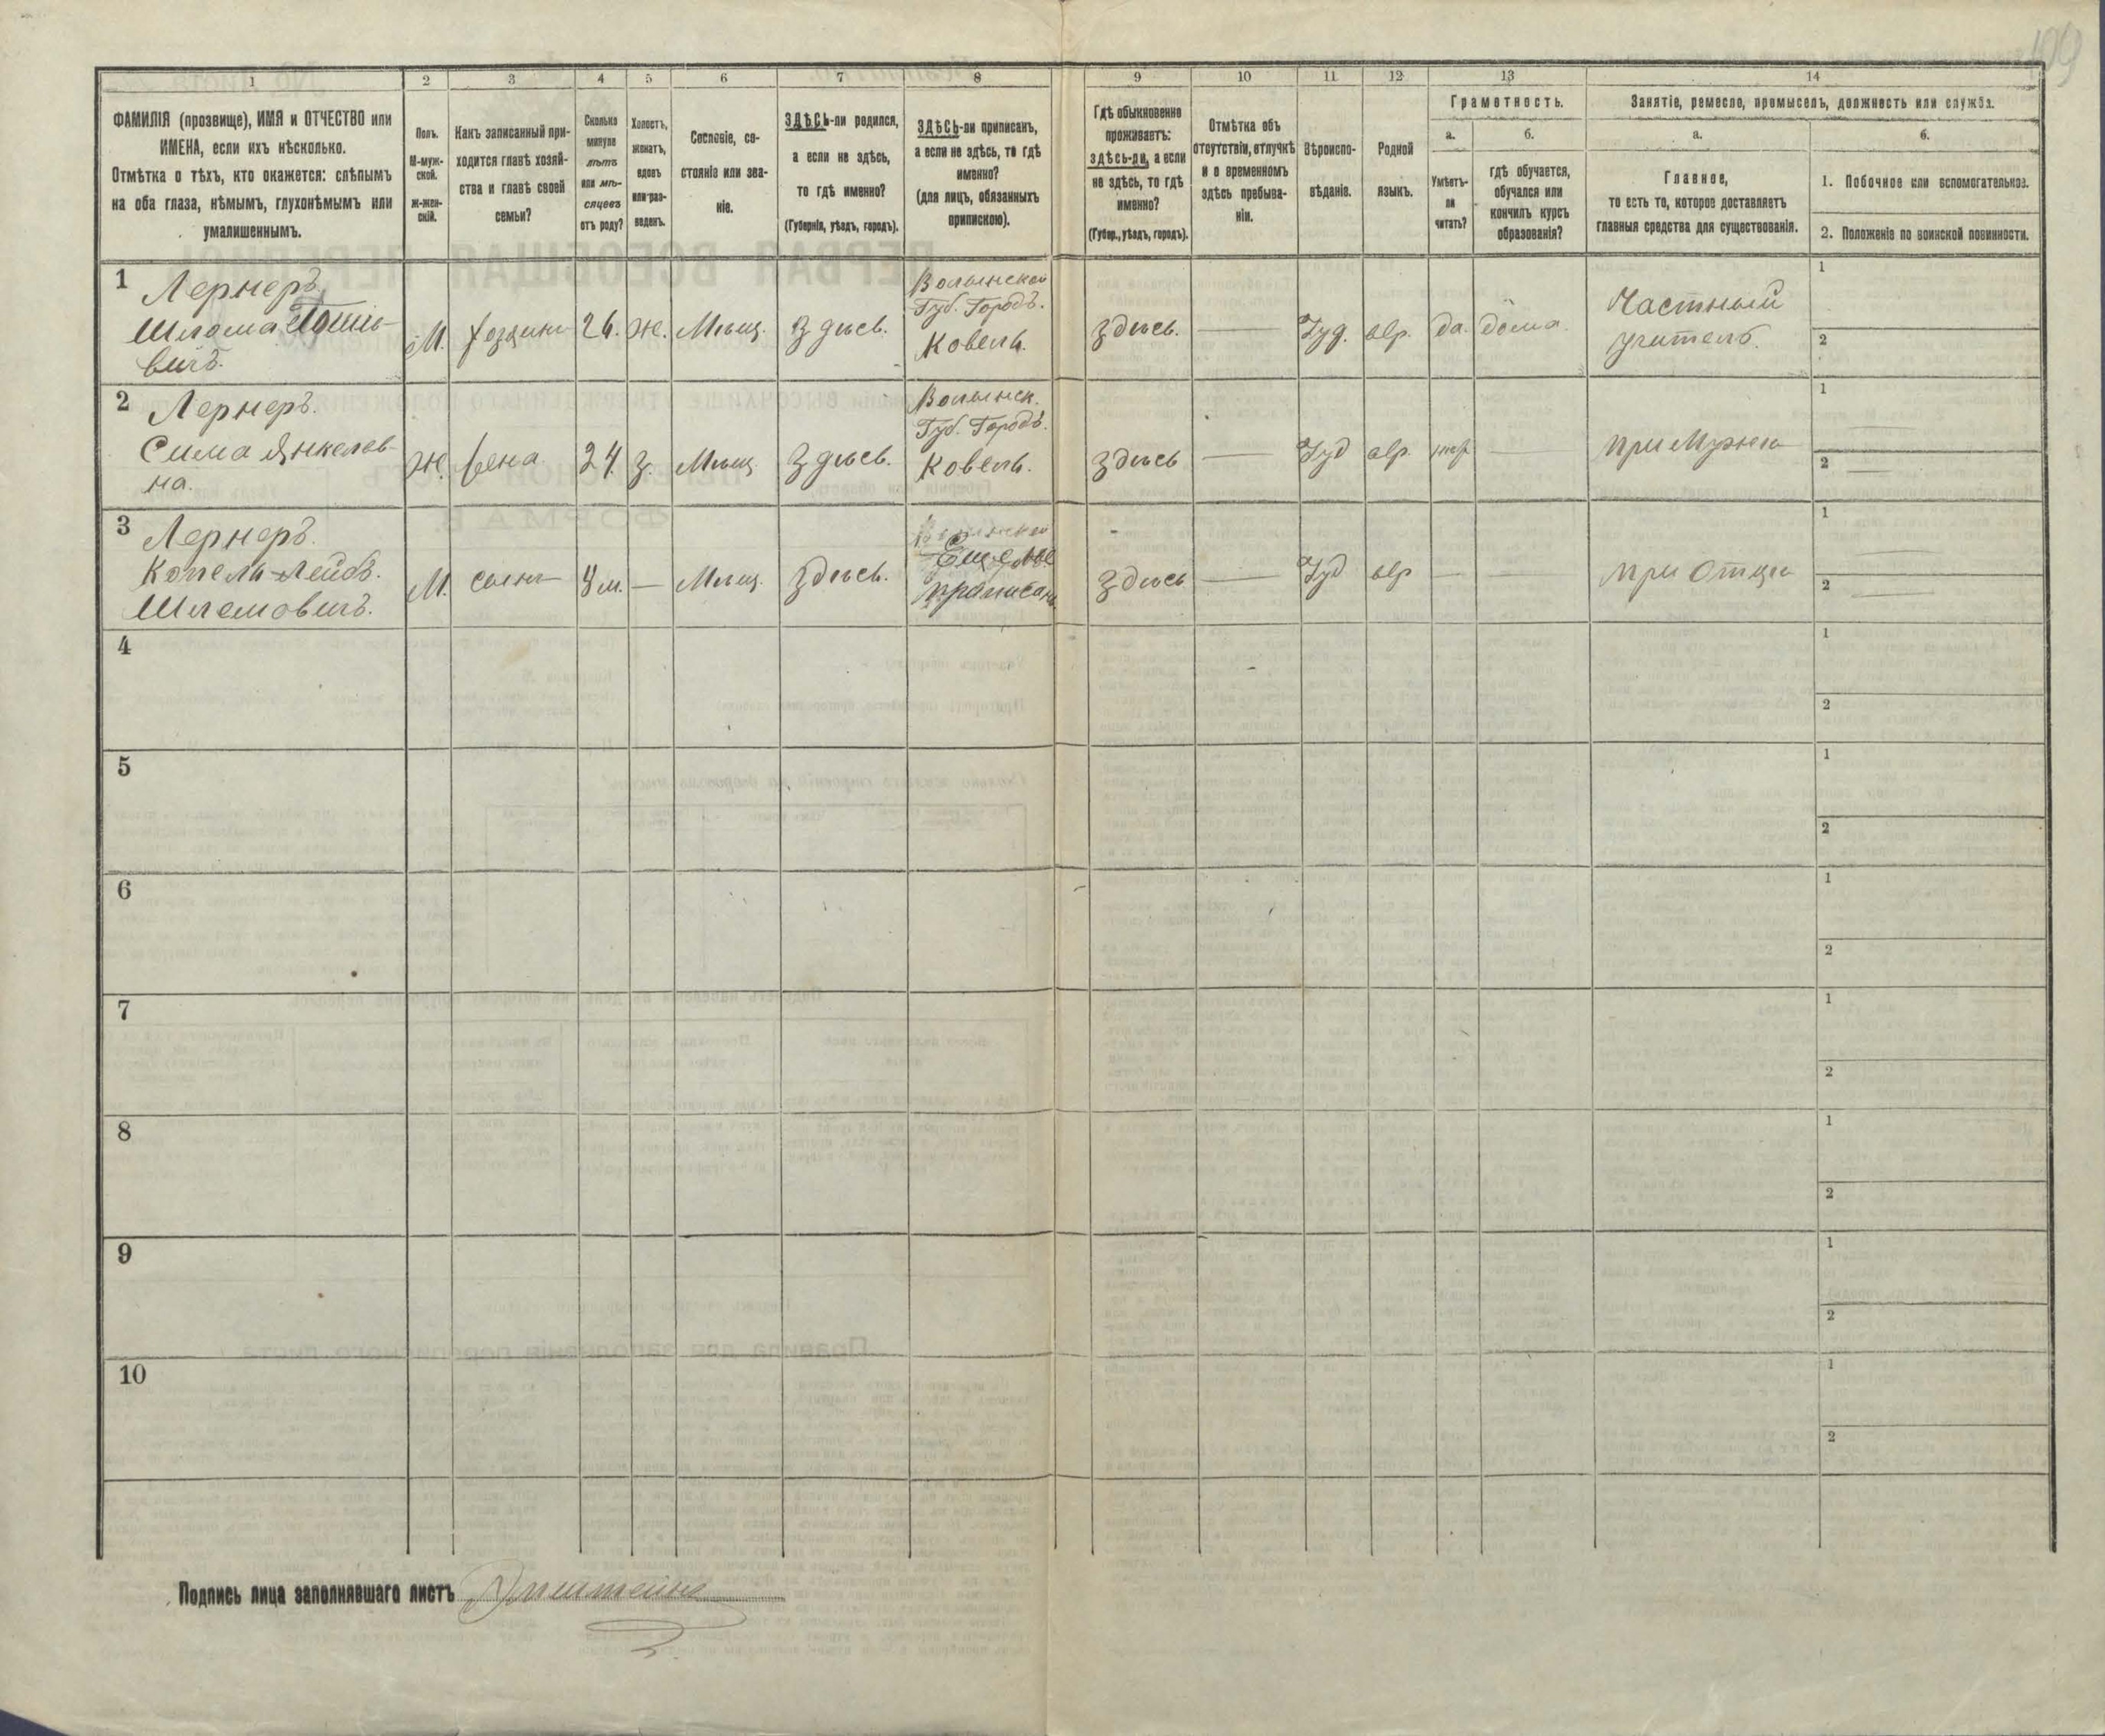 109
1
2
3
4
5
6
7
8
9
10
11
12
13
14
ФАМИЛІЯ (прозвище), ИМЯ и ОТЧЕСТВО или
ИМЕНА, если ихъ нѣсколько.
Отмѣтка о тѣхъ, кто окажется: слѣпымъ
на оба глаза, нѣмымъ, глухонѣмымъ или
умалишеннымъ.
Полъ.
М-муж-
ской.
Ж-жен-
скій.
Какъ записанный при-
ходится главѣ хозяй-
ства и главѣ своей
семьи?
Сколько
минуло
лѣтъ
или мѣ-
сяцевъ
отъ роду?
Холостъ,
женатъ,
вдовъ
или раз-
веденъ.
Сословіе, со-
стояніе или зва-
ніе.
ЗДѢСЬ-ли родился,
а если не здѣсь,
то гдѣ именно?
(Губернія, уѣздъ, городъ).
ЗДѢСЬ-ли приписанъ,
а если не здѣсь, то гдѣ
именно?
(для лицъ, обязанныхъ
припискою).
Гдѣ обыкновенно
проживаетъ:
здѣсь-ли, а если
не здѣсь, то гдѣ
именно?
(Губер., уѣздъ, городъ).
Отмѣтка объ
отсутствіи, отлучкѣ
и о временномъ
здѣсь пребыва-
ніи.
Вѣроиспо-
вѣданіе.
Родной
языкъ.
Грамотность.
а.
Умѣетъ-
ли
читать?
б.
гдѣ обучается,
обучался или
кончилъ курсъ
образованія?
Занятіе, ремесло, промыселъ, должность или служба.
а.
Главное,
то есть то, которое доставляетъ
главныя средства для существованія.
б.
1. Побочное или вспомогательное.
2. Положеніе по воинской повинности.
1 Лернеръ
Шлома
вичъ.
М. хозяинъ 26. ж. Мѣщ. Здѣсь.
Волынской
Губ. Городъ.
Ковель.
здѣсь. — Іуд. евр. да. дома.
Частный
учитель.
1
2
2 Лернеръ.
Сима Янкелев-
на.
Ж. жена 24. з. Мѣщ. Здѣсь.
Волынск.
Губ. Городъ.
Ковель.
здѣсь — Іуд евр. — при Мужѣ
1
2 —
3 Лернеръ.
Копель-Лейбъ.
Шлемовичъ.
М. сынъ 4 м. — Мѣщ. Здѣсь.
Еще не
приписанъ
здѣсь — Іуд евр — — при Отцѣ
1
2
4
1
2
5
1
2
6
1
2
7
1
2
8
1
2
9
1
2
10
1
2
Подпись лица заполнявшаго листъ